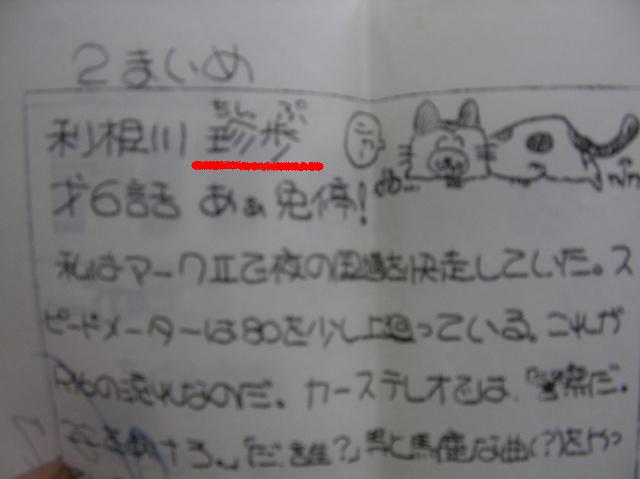 2まいめ
ちん ぷ
利根川 珍歩
才6話 あぁ免停!
私はマークⅡで夜の国道を快走していた。ス
ピードメーターは80を少し上回っている。これが
の流れなのだ。カーステレオでは、「警察だ。
ろ。」「だ誰?」馬鹿な曲(?)をやっ